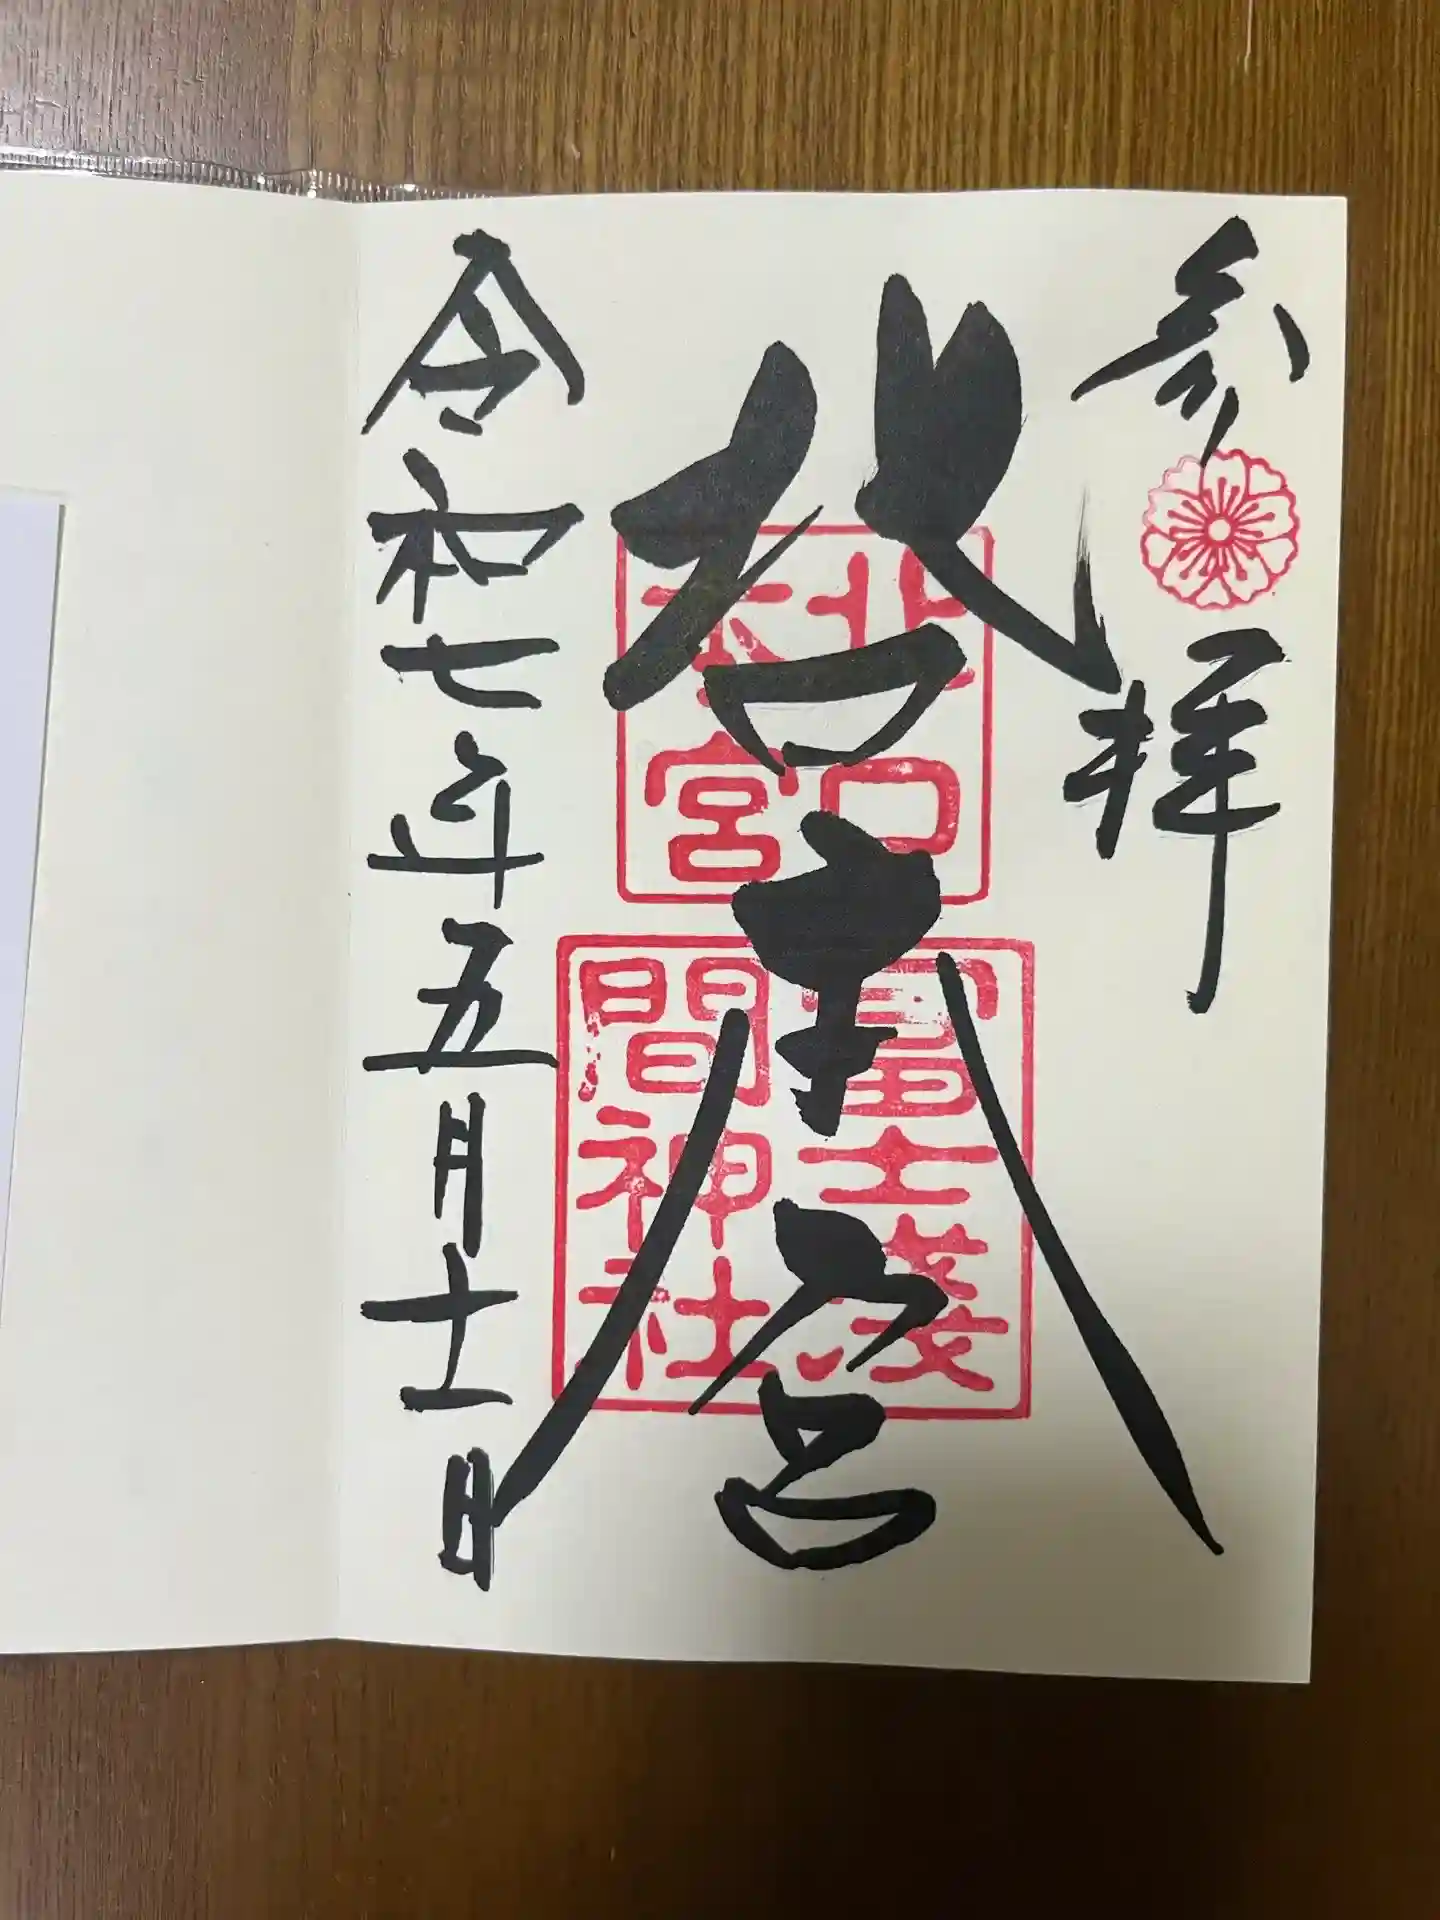 参拝
北口本宮
北口
本宮
冨士淺
間神社
令和七年五月十一日